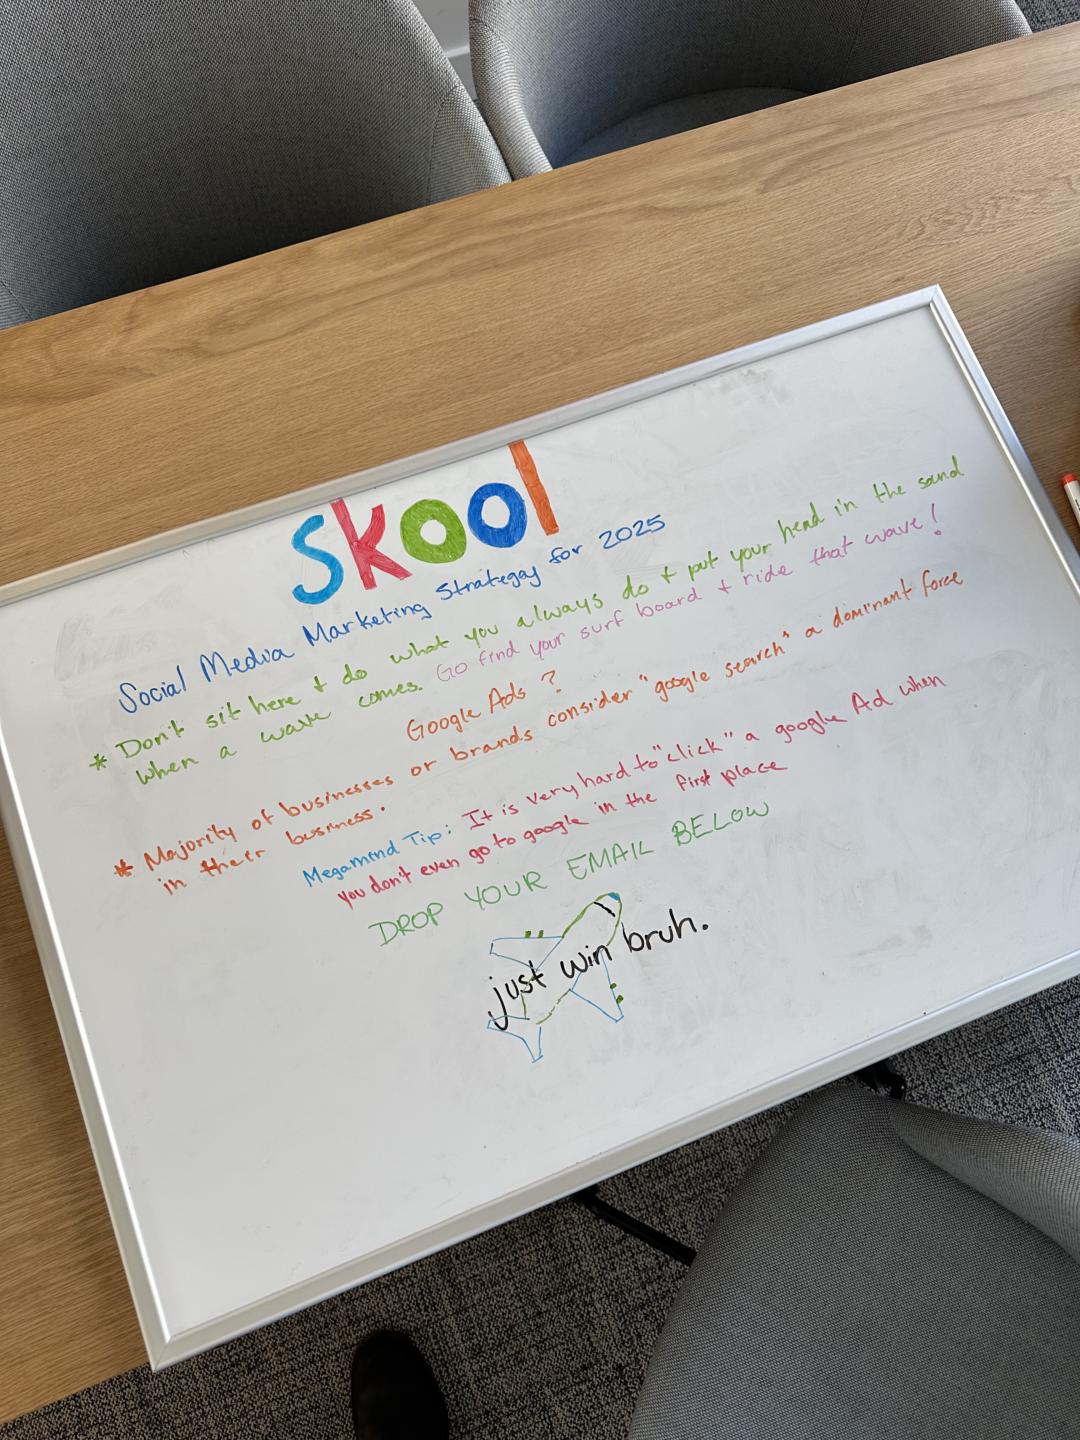 skool
Social Media Marketing Strategy for 2025
* Don't sit here + do what you always do + put your head in the sand
when a wave comes. Go find your surf board + ride that wave!
Google Ads ?
* Majority of businesses or brands consider "google search" a dominant force
in their business.
Megamind Tip: It is very hard to "click" a google Ad when
you don't even go to google in the first place
DROP YOUR EMAIL BELOW
just win bruh.